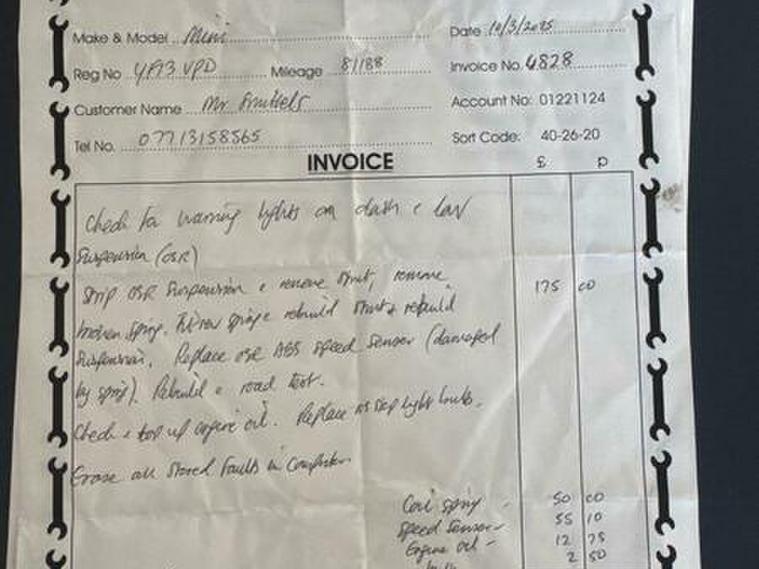 Make & Model Mini Date 10/3/2025
Reg No YA13 VPD Mileage 81188 Invoice No. 4828
Customer Name Mr Account No: 01221124
Tel No. 07713158565 Sort Code: 40-26-20
INVOICE £ p
Check for warning lights on dash & low
Suspension (OSR)
Strip OSR Suspension & remove strut, remove 175 00
broken spring. Fit new spring & rebuild strut & rebuild
Suspension. Replace OSR ABS speed sensor (damaged
by spring). Rebuild & road test.
Check & top up engine oil. Replace stop light bulb.
Erase all stored faults in computer.
Coil spring - 50 00
Speed sensor - 55 10
Engine oil - 12 75
2 50